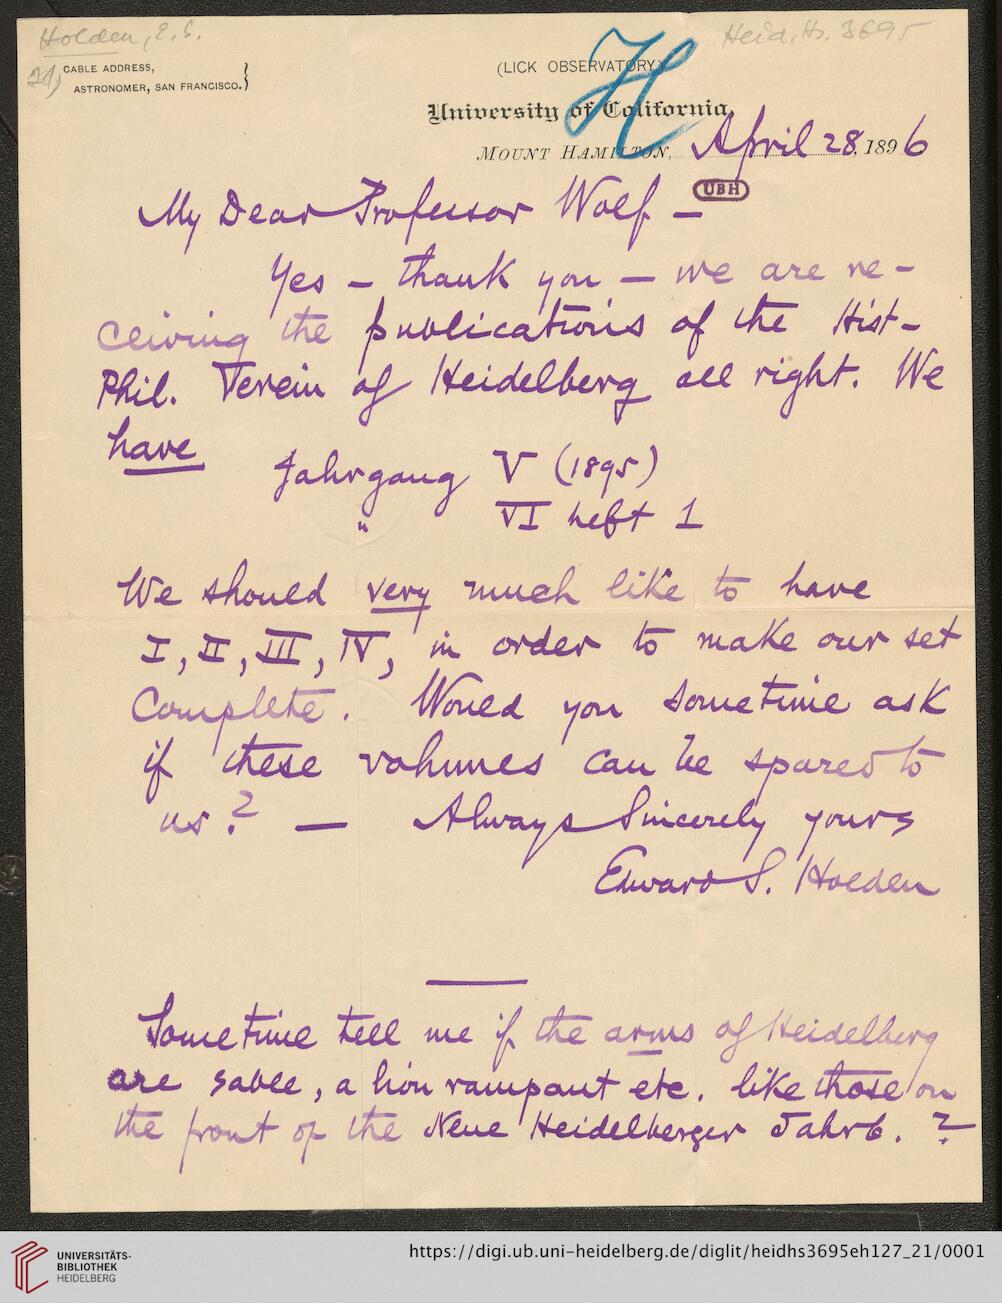 Holden, E. S.
Heid. Hs. 3695
21)
CABLE ADDRESS,
ASTRONOMER, SAN FRANCISCO.}
(LICK OBSERVATORY)
H
University of California,
MOUNT HAMILTON, April 28, 1896
UBH
My Dear Professor Wolf —
Yes — thank you — we are re-
ceiving the publications of the Hist-
Phil. Verein of Heidelberg all right. We
have
Jahrgang V (1895)
" VI heft 1
We should very much like to have
I, II, III, IV, in order to make our set
complete. Would you sometime ask
if these volumes can be spared to
us? — Always Sincerely yours
Edward S. Holden
Sometime tell me if the arms of Heidelberg
are sable, a lion rampant etc. like those on
the front of the Neue Heidelberger Jahrb. ?
UNIVERSITÄTS-
BIBLIOTHEK
HEIDELBERG
https://digi.ub.uni-heidelberg.de/diglit/heidhs3695eh127_21/0001